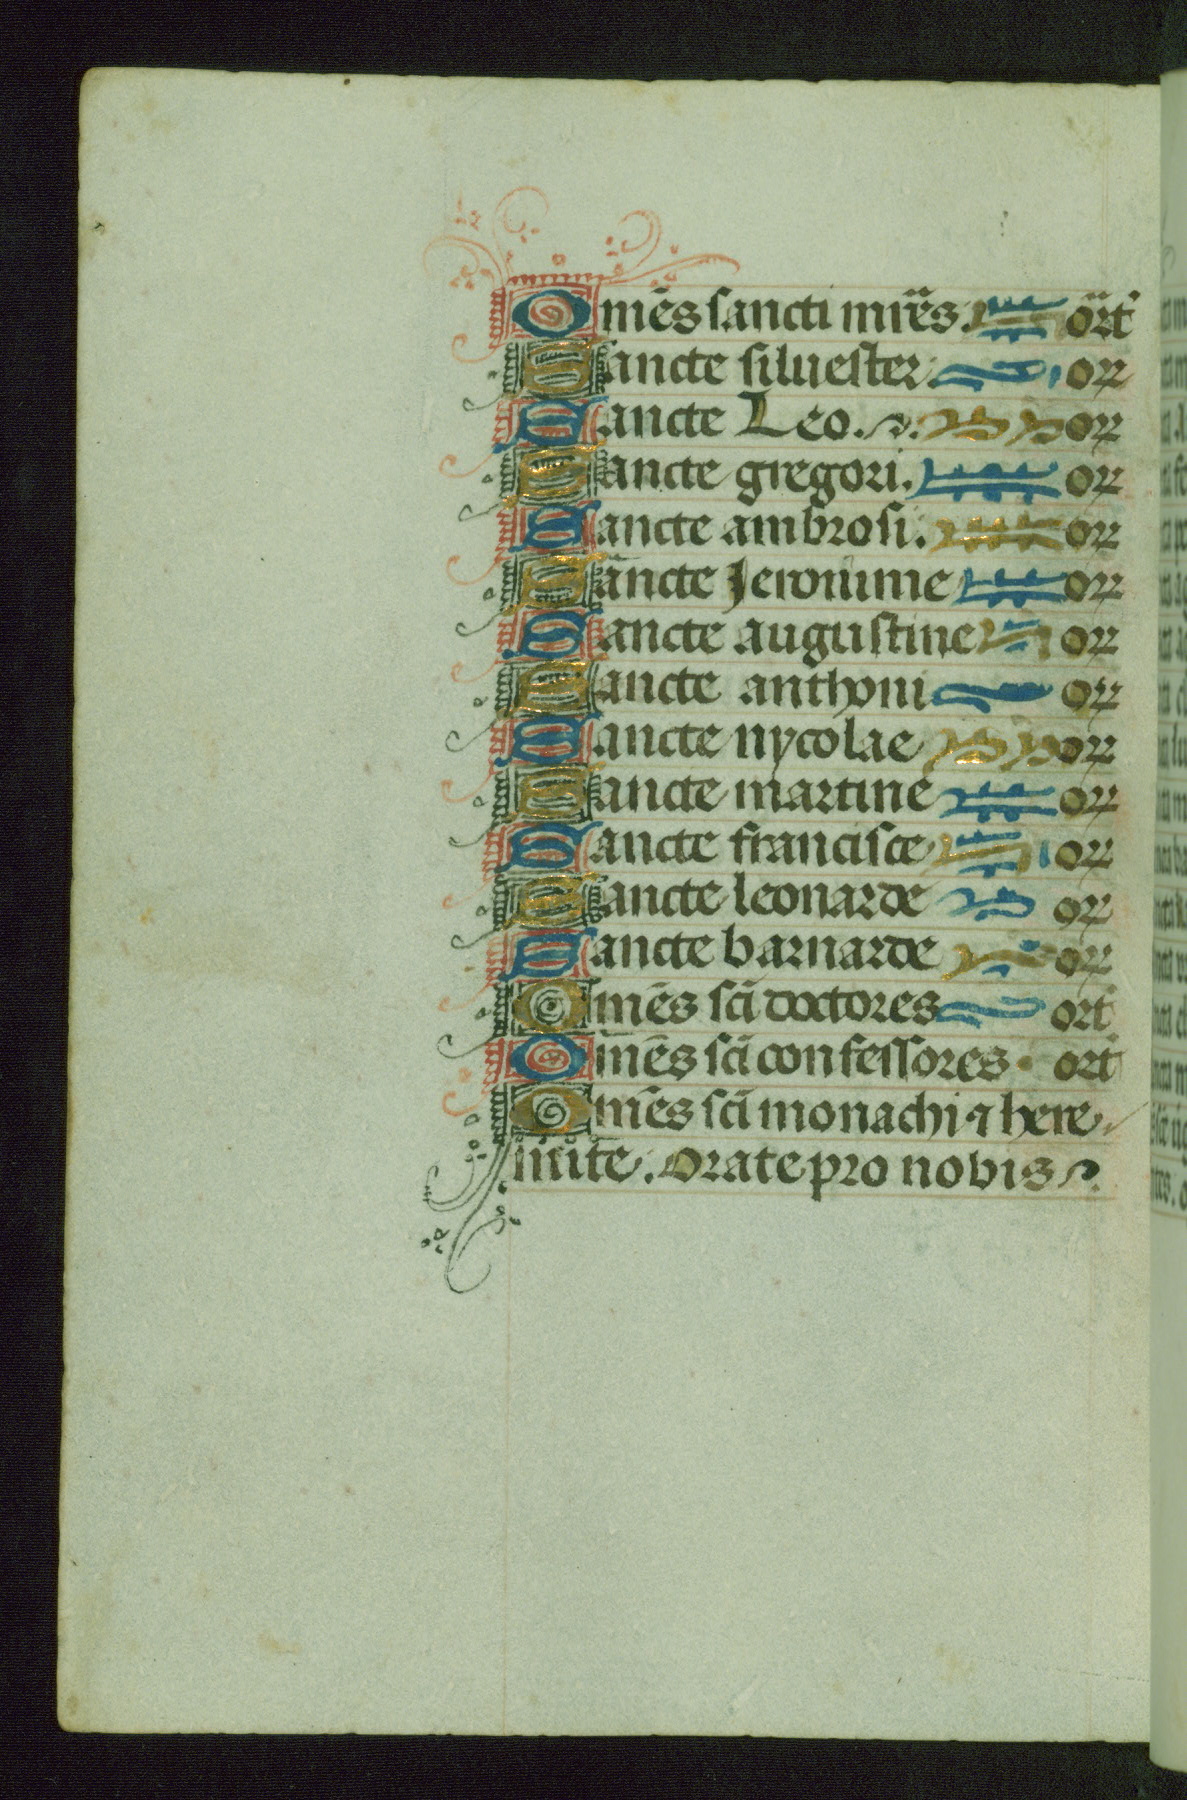 Omēs sancti mr̄es. ort
Sancte siluester. or
Sancte Leo. or
Sancte gregori. or
Sancte ambrosi. or
Sancte Jeronime or
Sancte augustine or
Sancte anthoni or
Sancte nycolae or
Sancte martine or
Sancte francisce or
Sancte leonarde or
Sancte barnarde or
Omēs sc̄i doctores ort
Omēs sc̄i confessores. ort
Omēs sc̄i monachi ⁊ here
mite. Orate pro nobis.